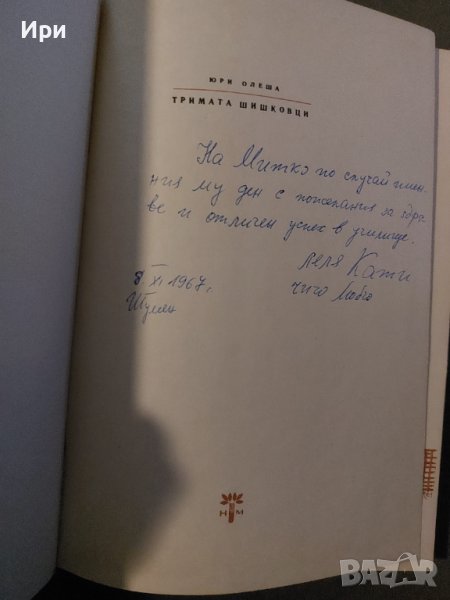 Ири
ЮРИ ОЛЕША
ТРИМАТА ШИШКОВЦИ
На Митко по случай имен-
ния му ден с пожелания за здра-
ве и отличен успех в училище.
леля Кати
чичо Любо
8 XI 1967,
Шумен
НМ
BAZAR